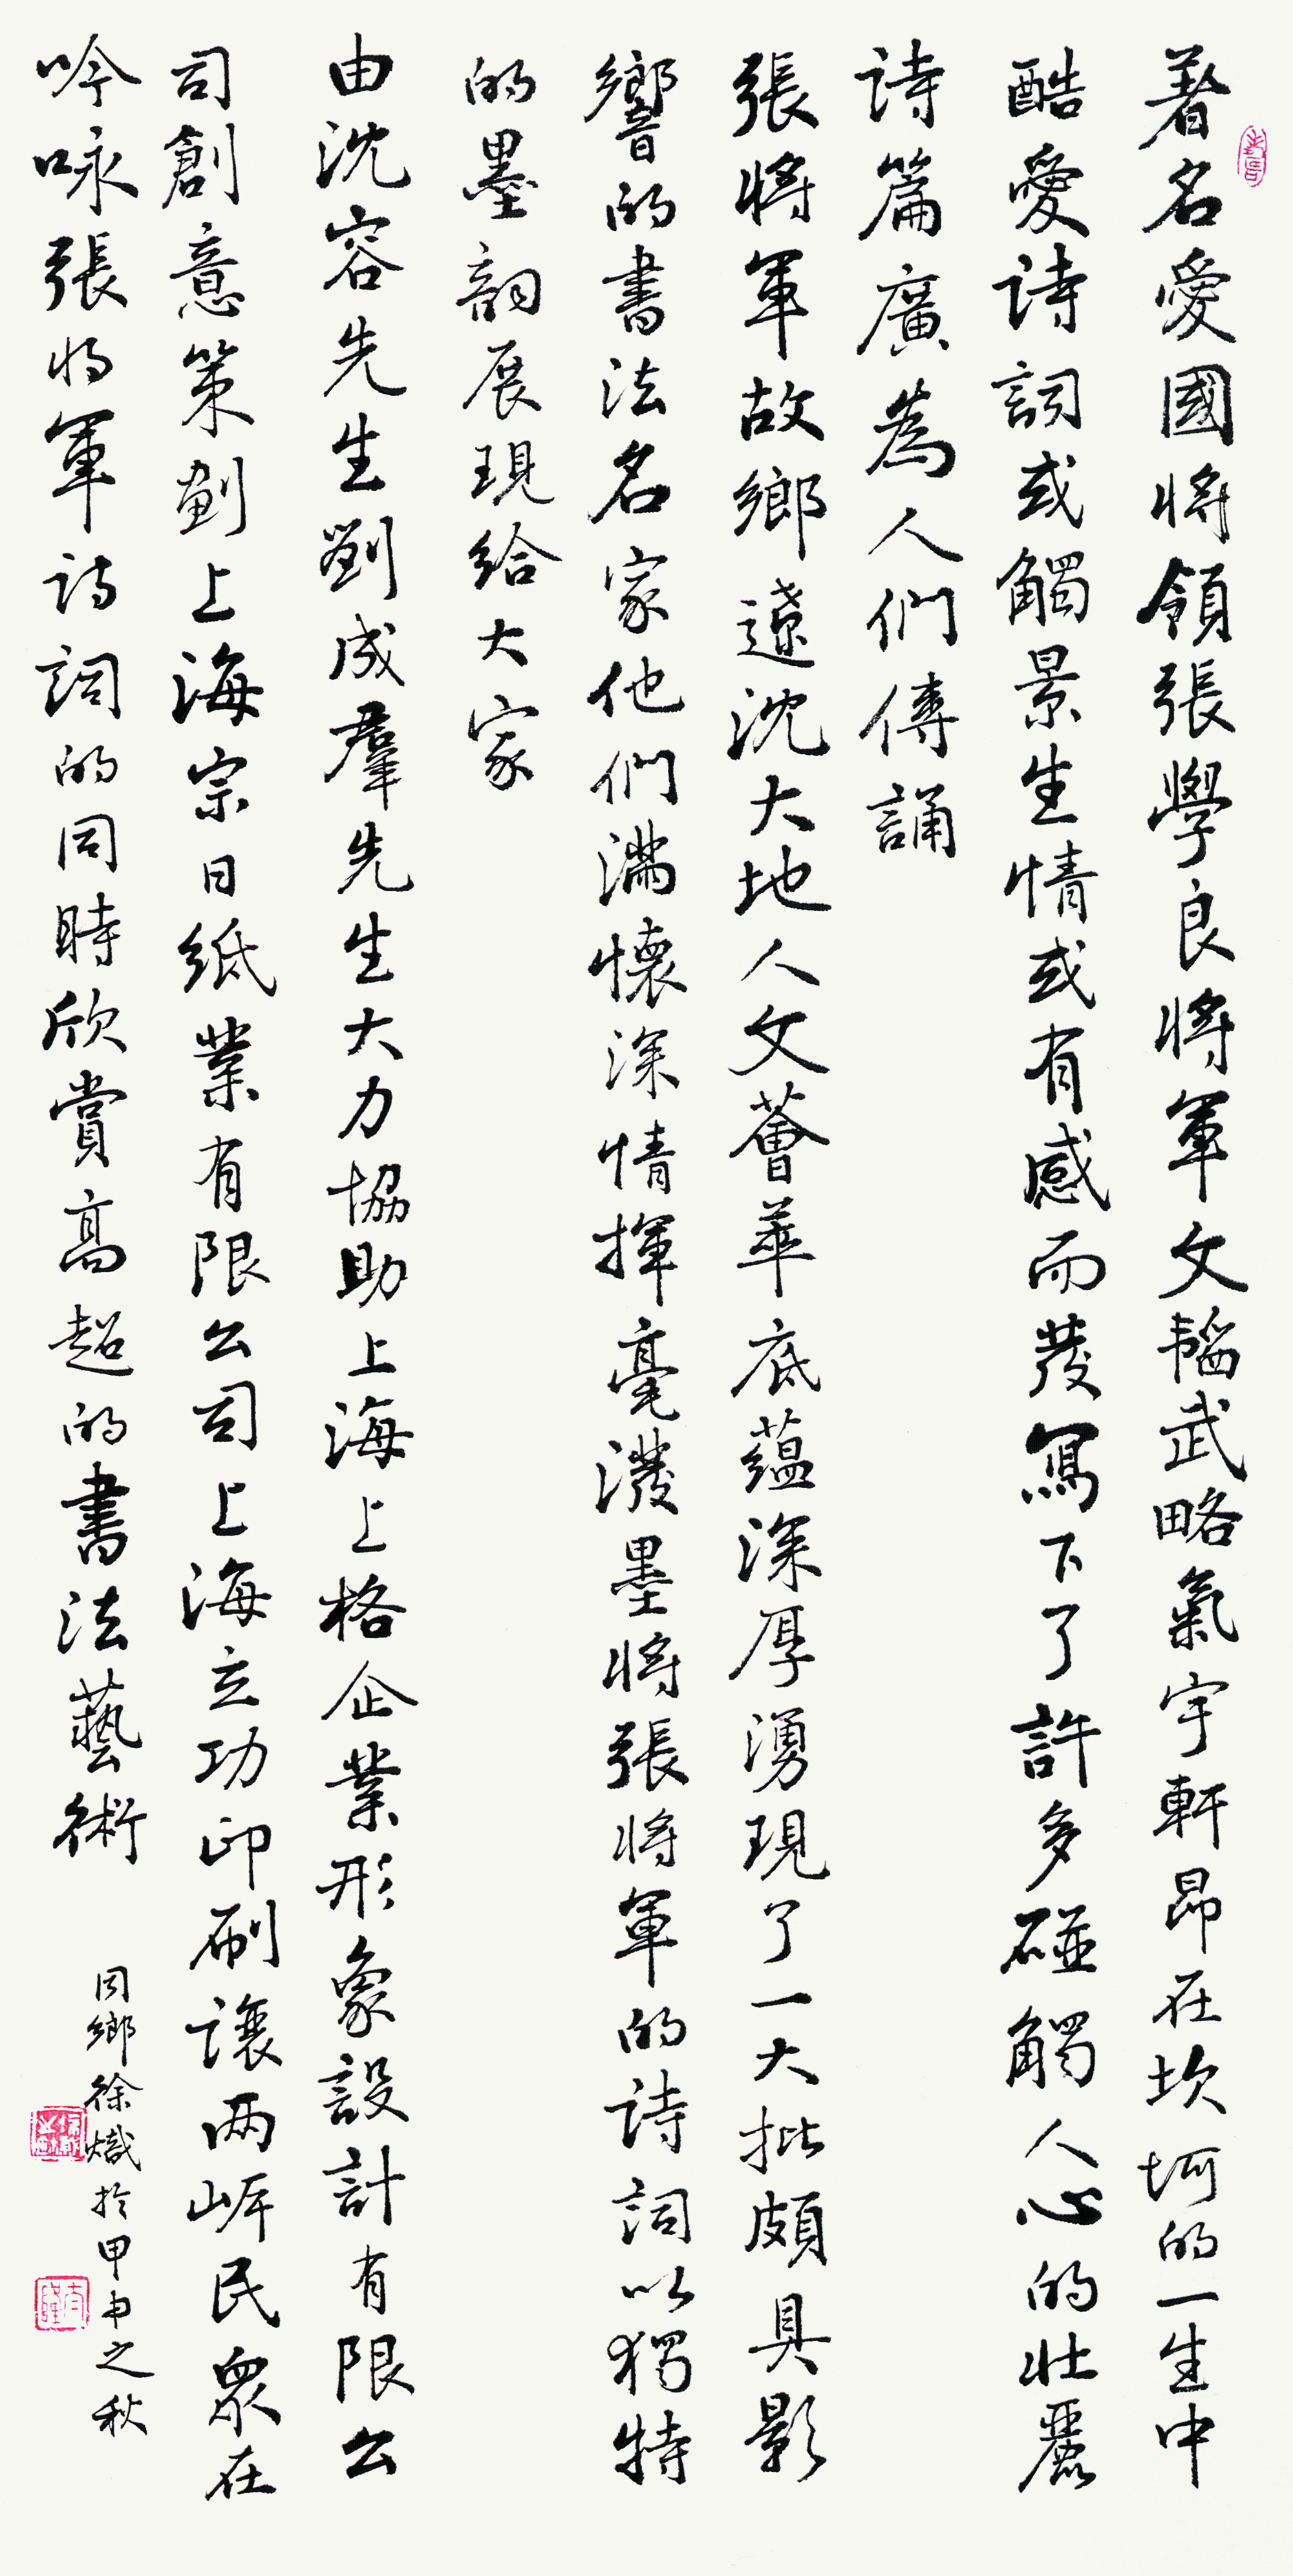 著名愛國將領張學良將軍文韜武略氣宇軒昂在坎坷的一生中
酷愛詩詞或觸景生情或有感而發寫下了許多碰觸人心的壯麗
詩篇廣為人們傳誦
張將軍故鄉遼沈大地人文薈萃底蘊深厚湧現了一大批頗具影
響的書法名家他們滿懷深情揮毫潑墨將張將軍的詩詞以獨特
的墨韵展現給大家
由沈容先生劉成羣先生大力協助上海上格企業形象設計有限公
司創意策劃上海宗日紙業有限公司上海立功印刷讓兩岸民眾在
吟咏張將軍詩詞的同時欣賞高超的書法藝術
同鄉徐熾於甲申之秋